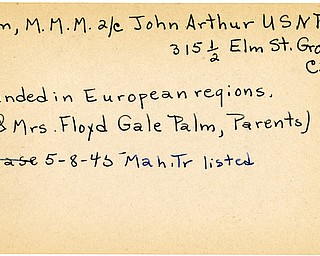 m, M.M.M. 2/c John Arthur USNR
315 1/2 Elm St. Gro
C
nded in European regions.
& Mrs. Floyd Gale Palm, Parents)
ase 5-8-45 Mah.Tr listed